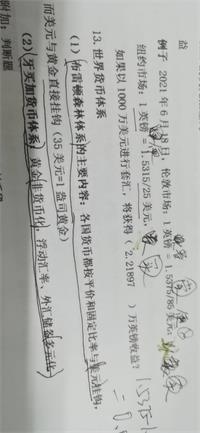 益
例子 2021 年 6 月 18 日，伦敦市场：1 英镑 = 1.5375/85 美元，
纽约市场：1 英镑 = 1.5315/25 美元，
如果以 1000 万美元进行套汇，将获得（ 2.21897 ）万英镑收益？
13. 世界货币体系
（1）布雷顿森林体系的主要内容：各国货币都按平价和固定比率与美元挂钩，
而美元与黄金直接挂钩（35 美元=1 盎司黄金）
（2）牙买加货币体系：黄金非货币化，浮动汇率、外汇储备多元化
附加：判断题